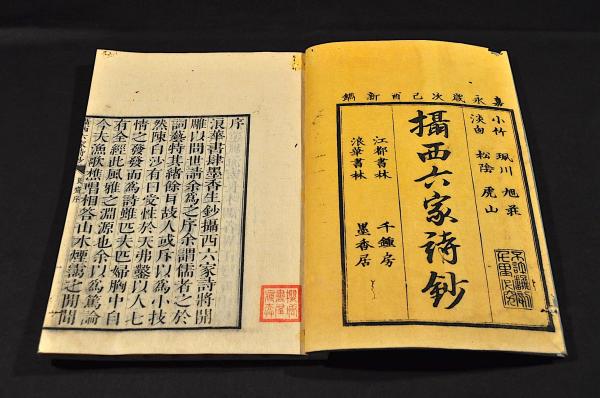 嘉永歳次己酉新鐫
小竹 珮川 旭荘
淡囪 松陰 虎山
攝西六家詩鈔
江都書林 千鍾房
浪華書林 墨香居
序
浪華書肆墨香生鈔攝西六家詩將開
雕以問世請余為之序余謂儒者之於
詞藝特其緒餘耳故人或斥以為小技
然陳白沙有曰受性於天弗鑿以人七
情之發發而為詩雖匹夫匹婦胸中自
有全經此風雅之淵源也余以為篤論
今夫漁歌樵唱相答山水煙濤之間